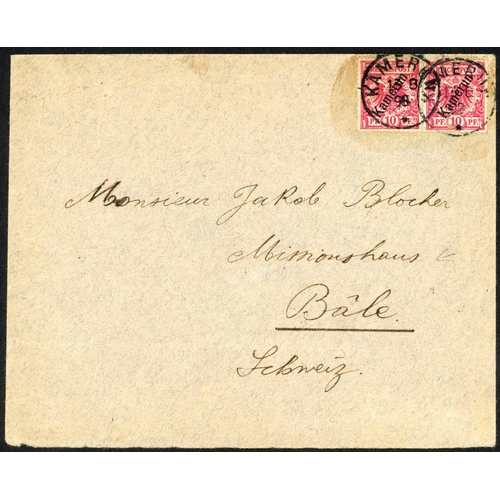 KAMERUN KAMERUN
1 8
98
Kamerun Kamerun
PF. 10 PF. PF. 10 PF.
Monsieur Jakob Blocher
Missionshaus
Bâle.
Schweiz.